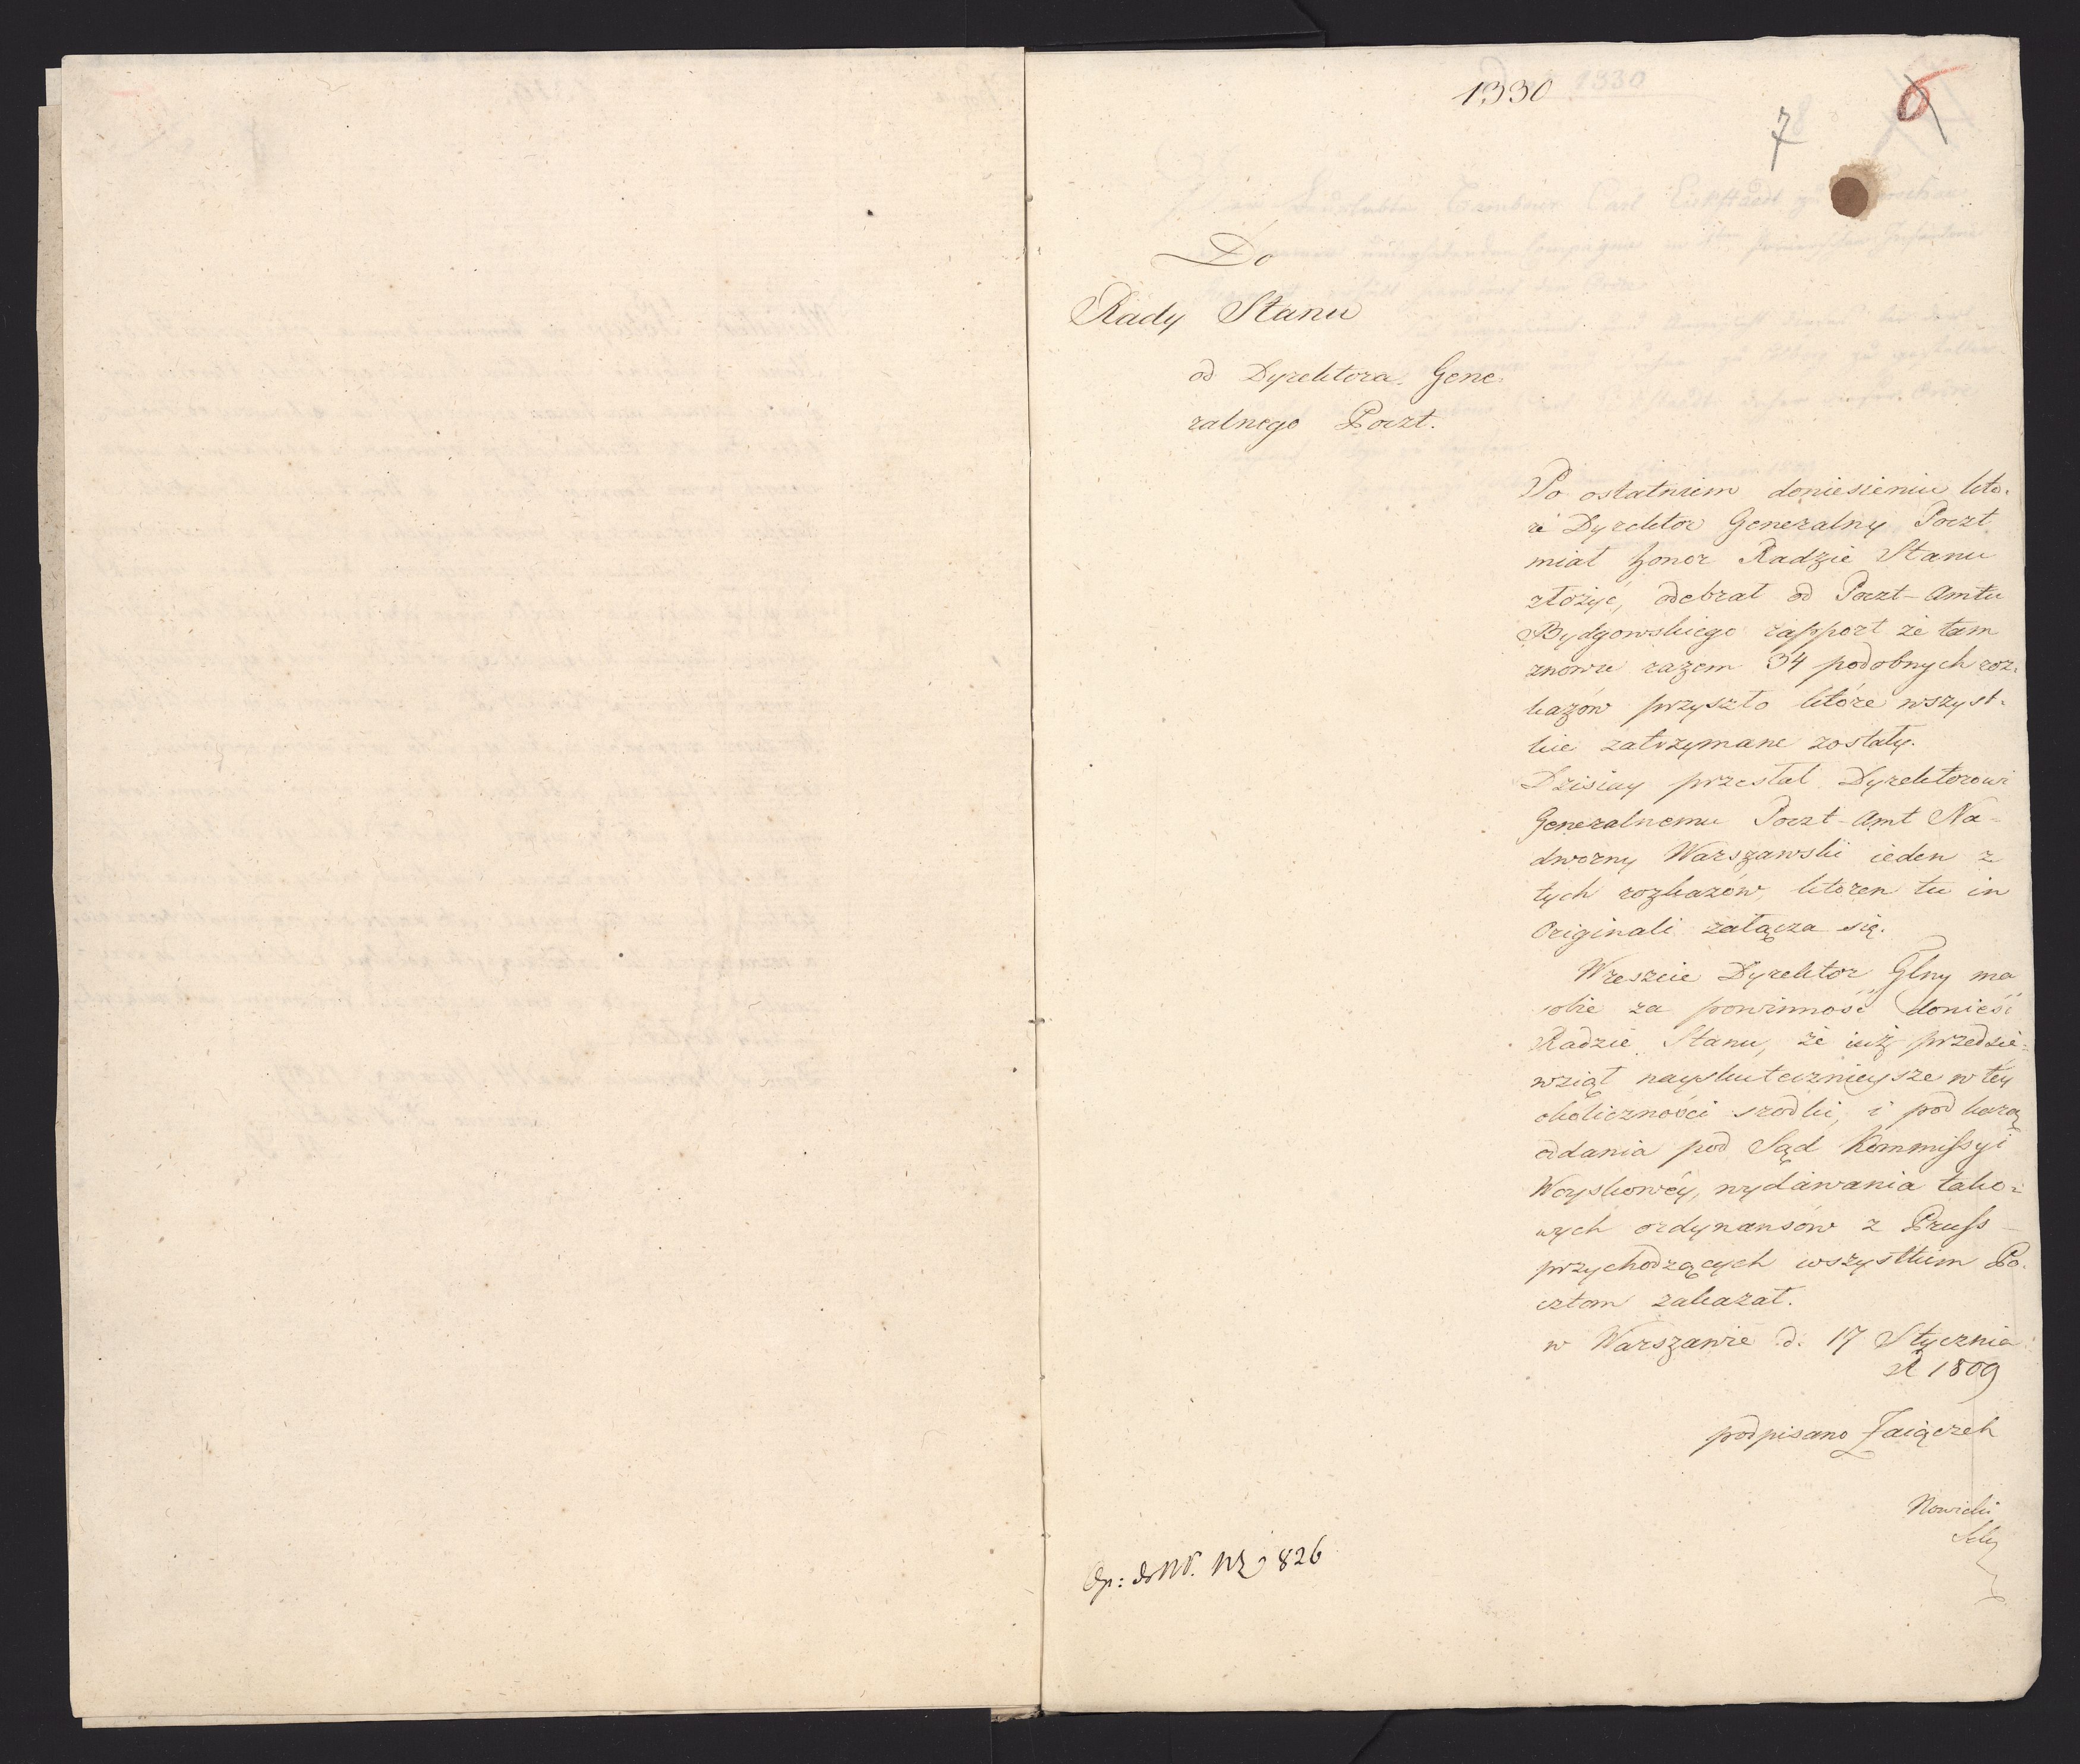 1330
7
6
Do
Rady Stanu
od Dyrektora Gene-
ralnego Poczt.
Po ostatniem doniesieniu któ-
re Dyrektor Generalny Poczt
miał honor Radzie Stanu
złożyć, odebrał od Poczt-Amtu
Bydgowskiego rapport że tam
znowu razem 34 podobnych roz-
kazów przyszło które wszyst-
kie zatrzymane zostały.
Dzisiay przesłał Dyrektorowi
Generalnemu Poczt-Amt Na-
dworny Warszawski ieden z
tych rozkazów, któren tu in
Originali załącza się.
Wreszcie Dyrektor Glny ma
sobie za powinność donieść
Radzie Stanu, że iuż przedsie-
wziął nayskutecznieysze w téy
okoliczności srodki, i pod karą
oddania pod Sąd Kommissyi
Woyskowéy, wydawania tako-
wych ordynansów z Pruss
przychodzących wszystkim Po-
cztom zakazał.
w Warszawie d. 17 Stycznia
R 1809
podpisano Zaiączek
Nowicki
826